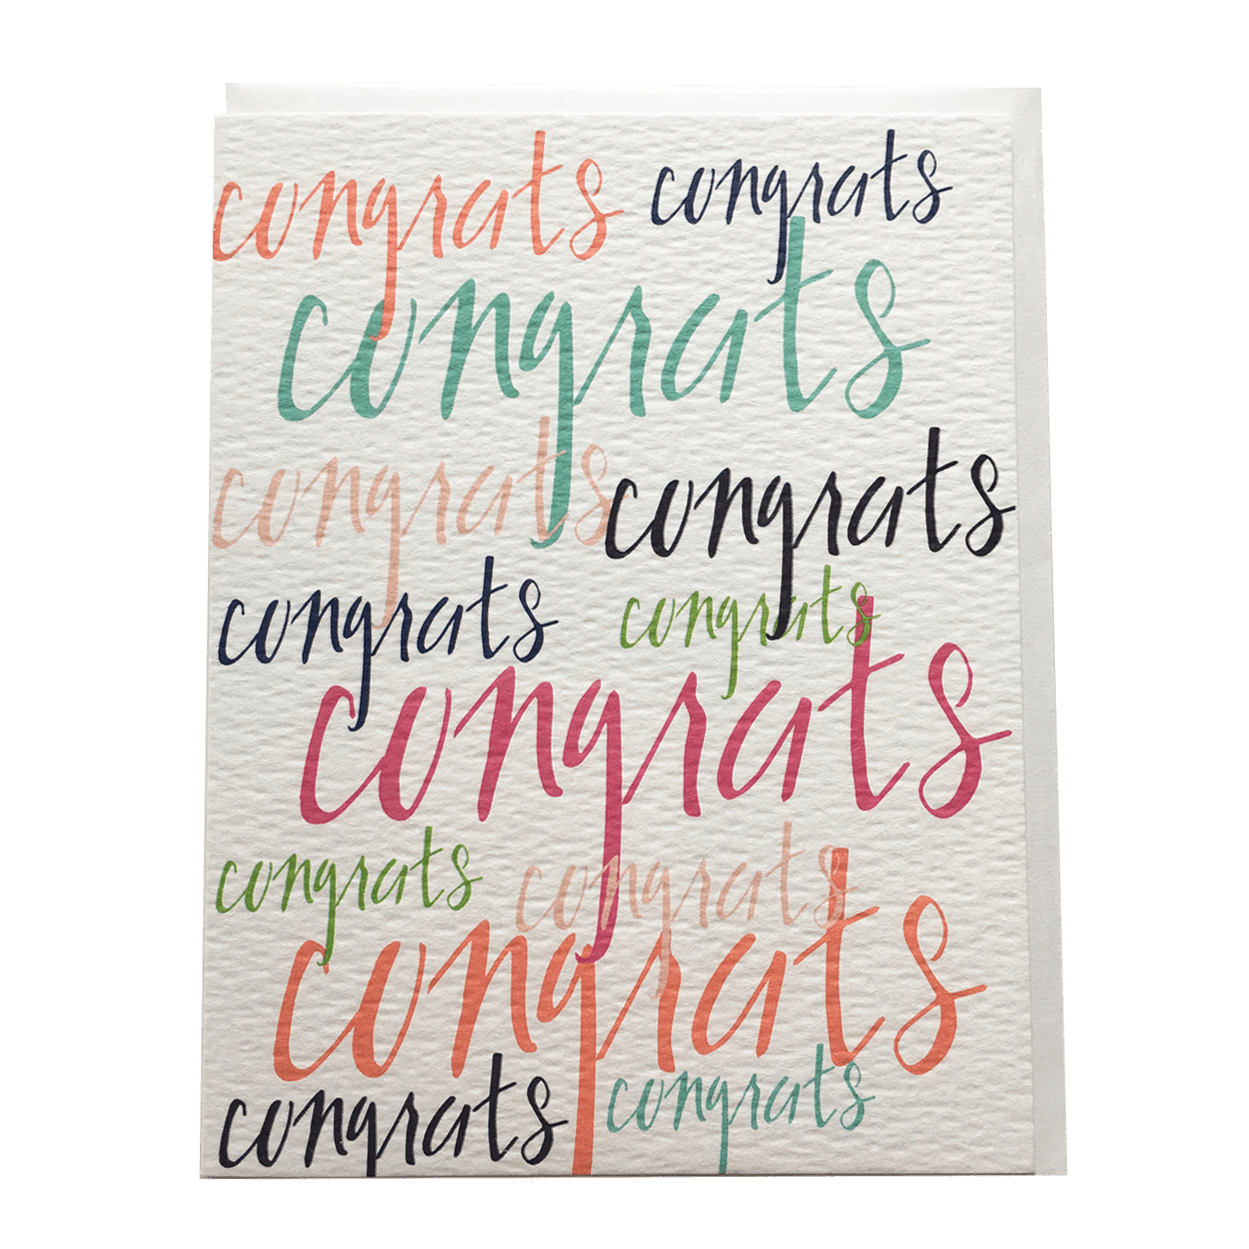 congrats congrats
congrats
congrats congrats
congrats congrats
congrats
congrats congrats
congrats
congrats congrats